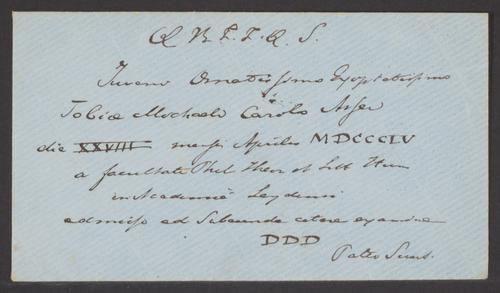 Q. B. F. F. Q. S.
Juveni Ornatissimo Exoptatissimo
Tobiæ Michaeli Carolo Asser
die XXVIII mensis Aprilis MDCCCLV
a facultate Phil Theor et Litt Hum
in Academiâ Leydensi
admisso ad subeunda cetera examina
DDD
Pater Suus.